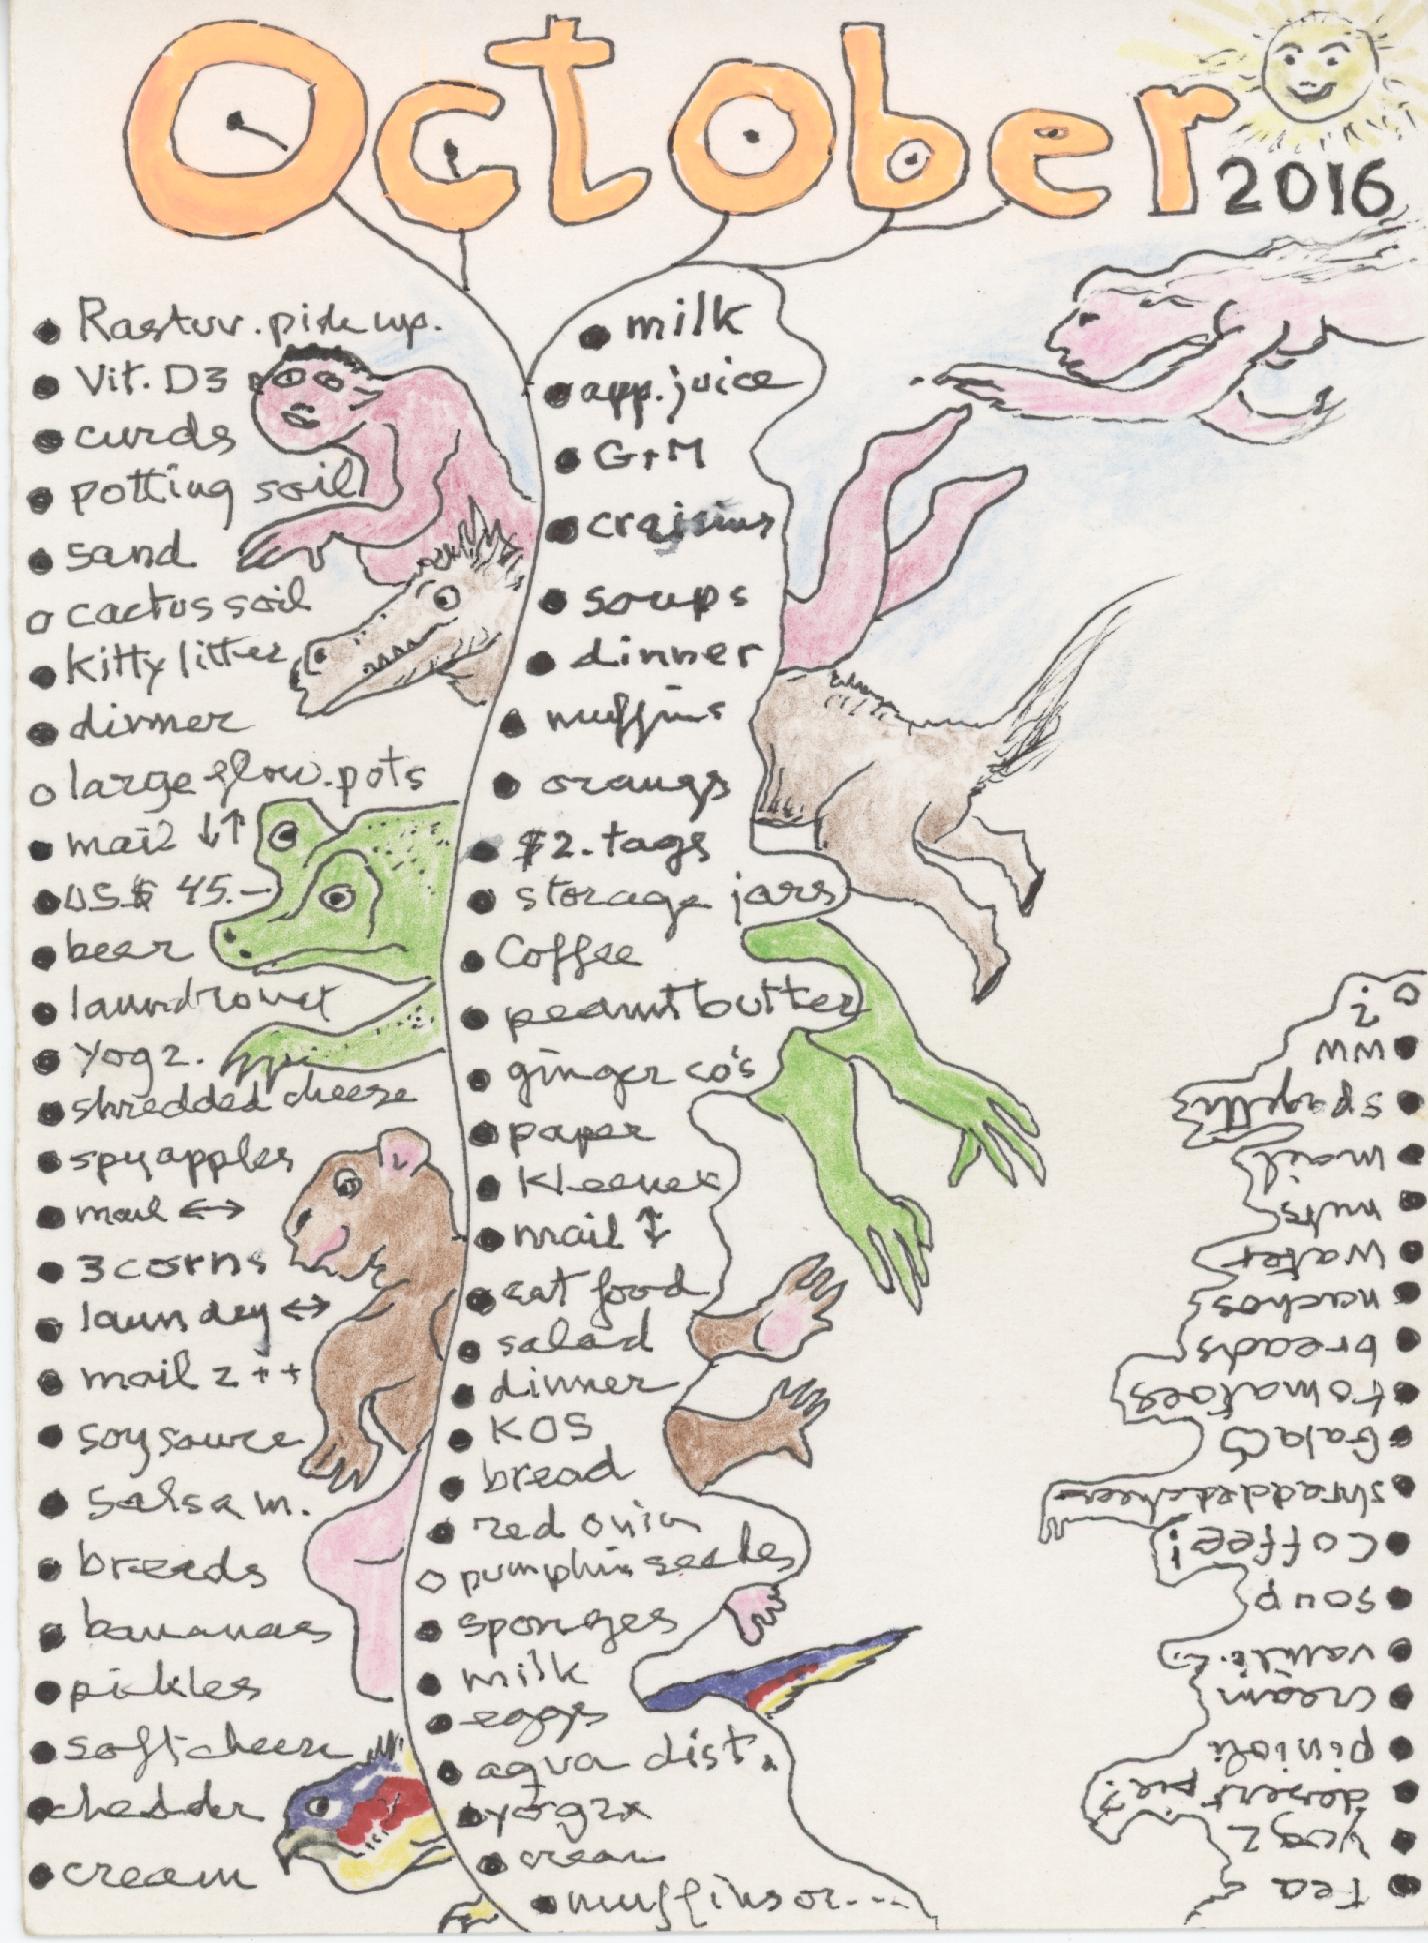 October
2016
Rastuv. pick up.
Vit. D3
curds
potting soil
sand
cactus soil
kitty litter
dinner
large flow. pots
mail ↓↑
US$ 45.-
beer
laundromet
yog 2.
shredded cheese
spy apples
mail ↔
3 corns
laundry ↔
mail 2 ++
soy sauce
Salsa m.
breads
bananas
pickles
soft cheese
chedder
cream
milk
app. juice
G+M
craisins
soups
dinner
muffins
orangs
$2. tags
storage jars
Coffee
peanut butter
ginger co's
paper
kleenex
mail ↕
eat food
salad
dinner
KOS
bread
red onion
pumpkin seedes
sponges
milk
eggs
aqua dist.
yog 2x
cream
muffins or...
tea
yog 2
desert pie?
pinioli
cream
vanil.
soup
coffee!
shredded cheese
Gala
tomatoes
breads
nachos
water
nuts
mail
spagetti
ww
?